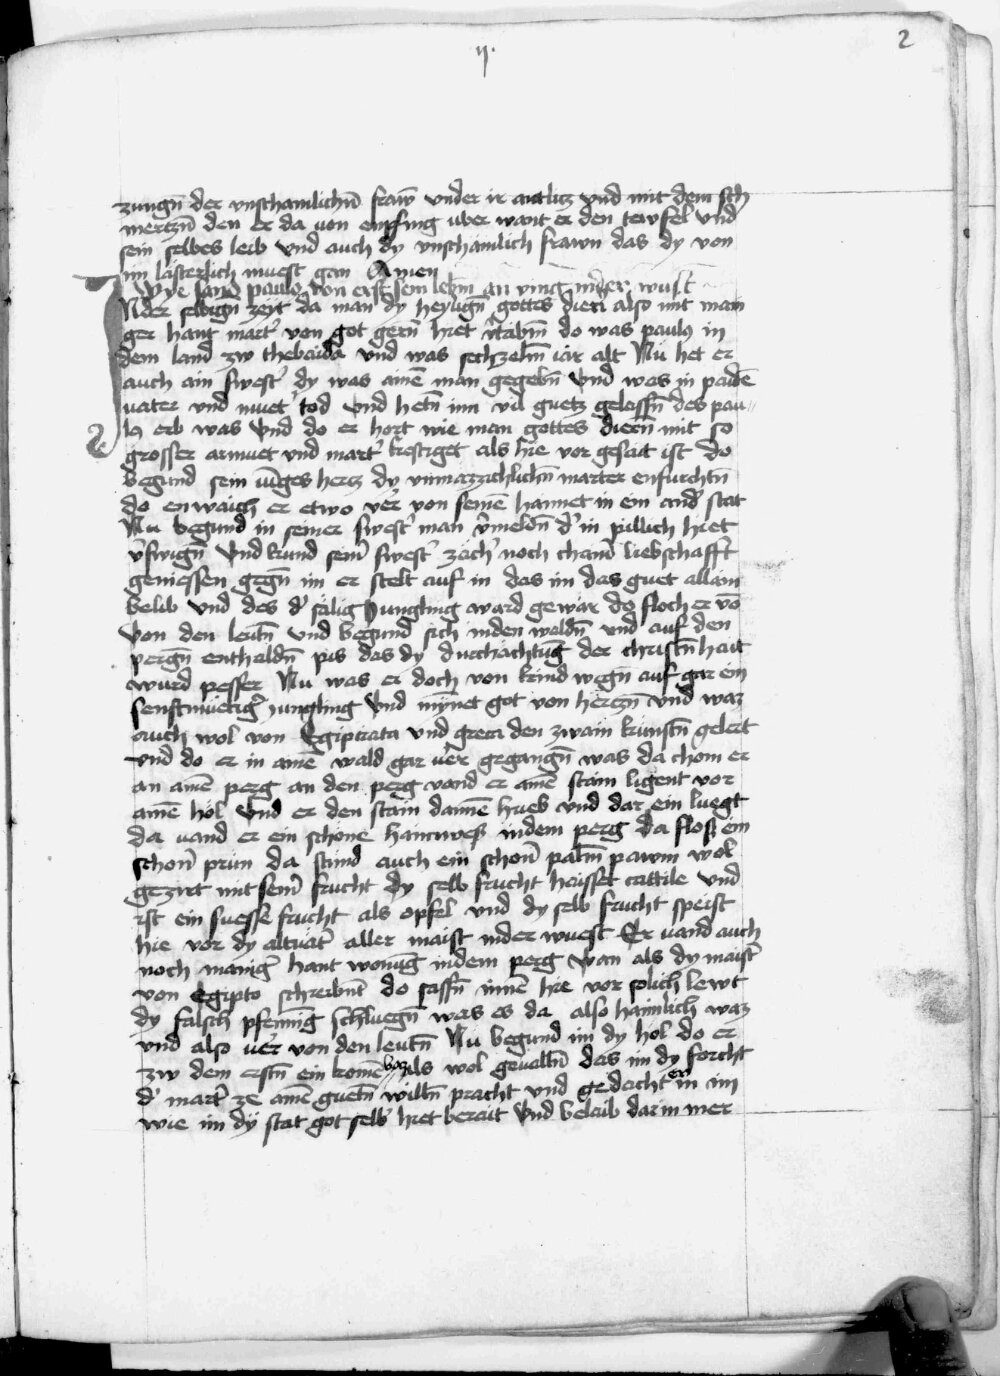 2
ij.
zungñ der vnschamlichñ fraw̄ vnder ir antlitz vnd mit dem sch
mertzñ den er da von enpfing vber want er den tewfel vnd
sein selbes leib vnd auch dy vnschamlich frawn das dy von
im lästerlich muest gan Amen
Wye sand paulus von erst sem lebm̄ an ving in der wust
INder selbign̄ zeyt da man dy heyligñ gottes dierñ also mit man
ger hant mart' von got gern̄ hiet v'tribm̄ do was paulus in
dem land zw thebaida vnd was sechzehn̄ iar alt Nu het er
auch ain swest' dy was ainē man gegebñ vnd was in paidē
vater vnd muet' tod vnd hetñ im vil guetz gelassñ des pau
lus erb was vnd do er hort wie man gottes dierñ mit so
grosser armuet vnd mart' kestiget als hie vor gesait ist do
begund sein iūges hertz dy vnmazzichlichñ marter enfurchtñ
do enwaich er etwo ver von seinē haimet in ein and' stat
Nu begund in seiner swest' man v'meldñ d' in pillich hiet
v'swigñ vnd kund sein' swest' zäch' noch chain' liebschafft
geniessen gegñ im er stelt auf in das im das guet allain
belib vnd des d' sälig Jungling ward gewar do floch er vō
von den leutñ vnd begund sich inden waldñ vnd auf den
pergñ enthaldñ pis das dy durchächtūg der christñhait
wurd pesser Nu was er doch von kind wegñ auf gar ein
senftmuetig' iungling vnd mȳnet got von hertzñ vnd waz
auch wol von Egiptiaca vnd greca den zwain kunstñ gelert
vnd do er in ainē wald gar ver gegangñ was da chom er
an ainē perg an den perg vand er ainē stain ligent vor
ainē hol vnd er den stain dannē hueb vnd dar ein luegt
da vand er ein schone hantwegs indem perg da flos ein
schon' prun da stund auch ein schon' palm pawm wol
gezirt mit sein' frucht dy selb frucht haisset tattile vnd
ist ein suesse frucht als opfel vnd dy selb frucht speist
hie vor dy altvät' aller maist inder wuest Er vand auch
noch manig' hant wonūg indem perg wan als dy maist'
von Egipto schreibnt do sassñ innē hie vor solich lewt
dy falsch pfennig schluegñ was es da also haimlich waz
vnd also ver von den leutñ Nu begund im dy hol do er
zw dem erstñ ein komē waz als wol gevallñ das im dy forcht
d' mart' ze ainē guetñ willñ pracht vnd gedacht er in im
wie im dy stat got selb' hiet berait vnd belaib darin mer